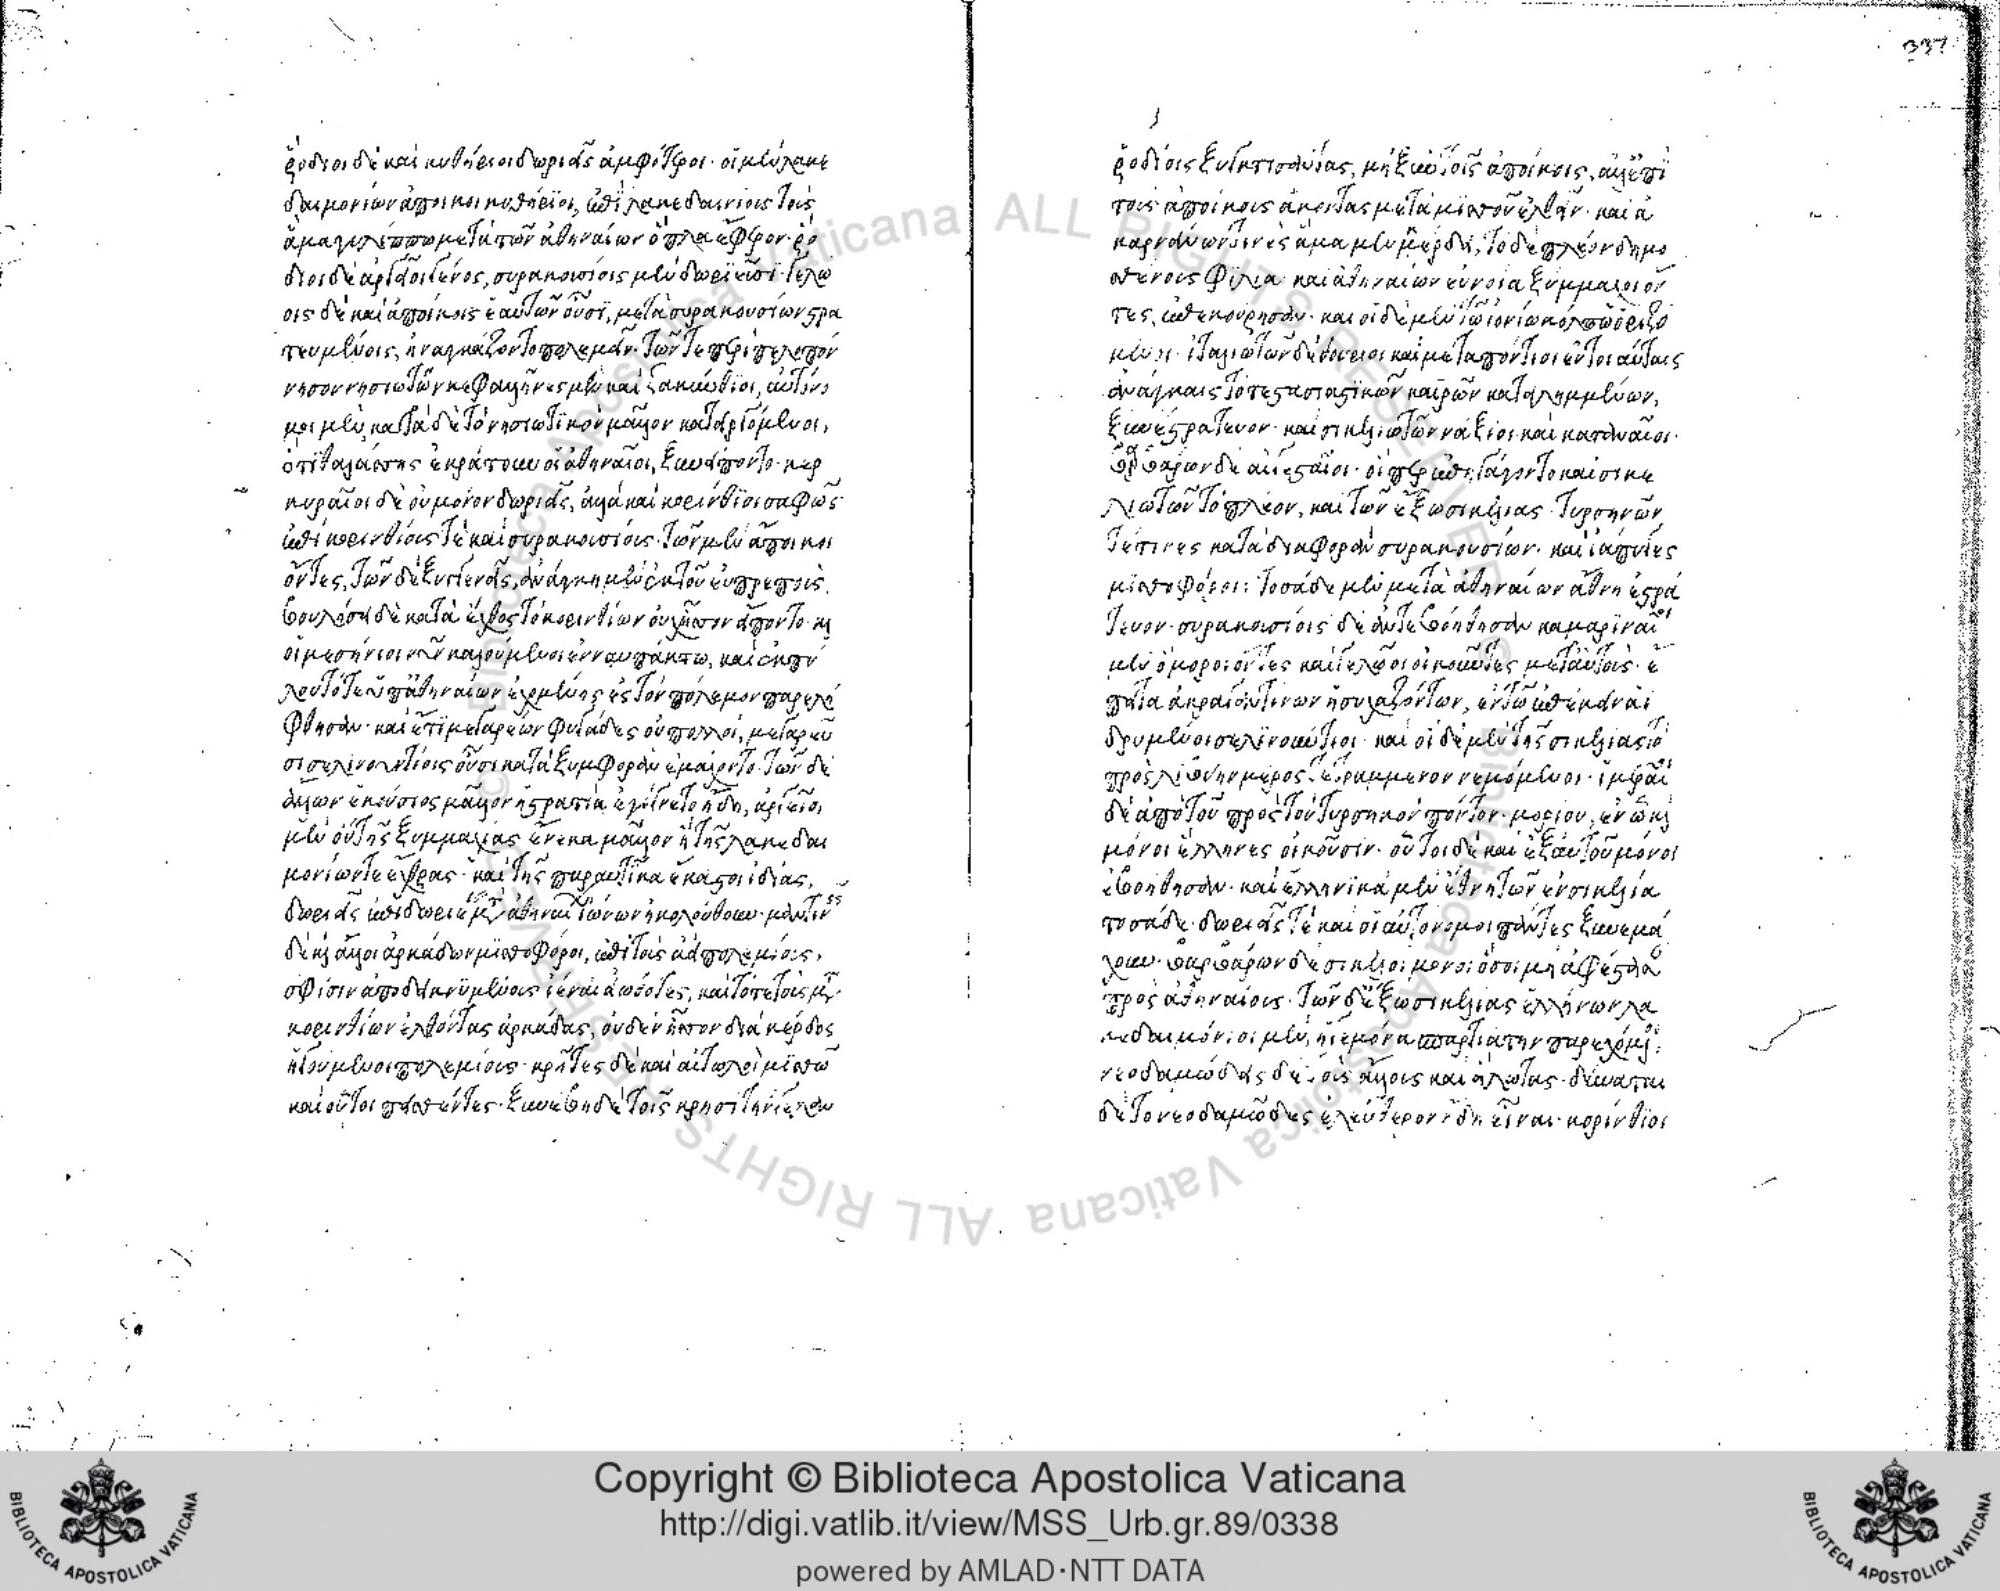 337
ῥόδιοι δὲ καὶ κυθήριοι δωριεῖς ἀμφότεροι· οἱ μὲν λακε
δαιμονίων ἄποικοι κυθήριοι, ἐπὶ λακεδαιμονίους τοὺς
ἅμα γυλίππῳ μετὰ τῶν ἀθηναίων ὅπλα ἔφερον· ῥό
διοι δὲ ἀργεῖοι γένος, συρακουσίοις μὲν δωριεῦσι· γελώ
οις δὲ καὶ ἀποίκοις ἑαυτῶν οὖσι, μετὰ συρακουσίων στρα
τευομένοις, ἠναγκάζοντο πολεμεῖν· τῶν τε περὶ πελοπόν
νησον νησιωτῶν κεφαλῆνες μὲν καὶ ζακύνθιοι, αὐτόνο
μοι μὲν κατὰ δὲ τὸ νησιωτικὸν μᾶλλον κατειργόμενοι,
ὅτι θαλάσσης ἐκράτουν οἱ ἀθηναῖοι, ξυνείποντο· κερ
κυραῖοι δὲ οὐ μόνον δωριεῖς, ἀλλὰ καὶ κορίνθιοι σαφῶς
ἐπὶ κορινθίους τὲ καὶ συρακουσίους· τῶν μὲν ἄποικοι
ὄντες, τῶν δὲ ξυγγενεῖς, ἀνάγκῃ μὲν ἐκ τοῦ εὐπρεποῦς
βουλήσει δὲ κατὰ ἔχθος τὸ κορινθίων οὐχ ἧσσον εἵποντο· καὶ
οἱ μεσήνιοι νῦν καλούμενοι ἐν ναυπάκτῳ, καὶ ἐκ πύ
λου τότε ὑπ' ἀθηναίων ἐχομένης ἐς τὸν πόλεμον παρελή
φθησαν· καὶ ἔτι μεγαρέων φυγάδες οὐ πολλοὶ, μεγαρεῦ
σι σελινουντίοις οὖσι κατὰ ξυμφορὰν ἐμάχοντο· τῶν δὲ
ἄλλων ἑκούσιος μᾶλλον ἡ στρατιὰ ἐγίγνετο ἤδη, ἀργεῖοι
μὲν οὐ τῆς ξυμμαχίας ἕνεκα μᾶλλον ἢ τῆς λακεδαι
μονίων τε ἔχθρας· καὶ τῆς παραυτίκα ἕκαστοι ἰδίας,
δωριεῖς ἐπὶ δωριέας μετὰ ἀθηναίων ἰώνων ἠκολούθουν· μαντινῆς
δὲ καὶ ἄλλοι ἀρκάδων μισθοφόροι, ἐπὶ τοὺς ἀεὶ πολεμίους,
σφίσιν ἀποδεικνυμένους ἰέναι εἰωθότες, καὶ τότε τοὺς μετὰ
κορινθίων ἐλθόντας ἀρκάδας, οὐδὲν ἧσσον διὰ κέρδος
ἡγούμενοι πολεμίους· κρῆτες δὲ καὶ αἰτωλοὶ μισθῷ
καὶ οὗτοι πεισθέντες· ξυνέβη δὲ τοῖς κρησὶ τὴν γέλαν
ῥοδίοις ξυγκτίσαντας, μὴ ξὺν τοῖς ἀποίκοις, ἀλλ' ἐπὶ
τοὺς ἀποίκους ἄκοντας μετὰ μισθοῦ ἐλθεῖν· καὶ ἀ
καρνάνων τινὲς ἅμα μὲν κέρδει, τὸ δὲ πλέον δημο
σθένους φιλίᾳ καὶ ἀθηναίων εὐνοίᾳ ξύμμαχοι ὄν
τες, ἐπεκούρησαν· καὶ οἵδε μὲν τῷ ἰονίῳ κόλπῳ ὁριζό
μενοι· ἰταλιωτῶν δὲ θούριοι καὶ μεταπόντιοι ἐν τοιαύταις
ἀνάγκαις τότε στασιαστικῶν καιρῶν κατειλημμένων,
ξυνεστράτευον· καὶ σικελιωτῶν νάξιοι καὶ καταναῖοι·
βαρβάρων δὲ ἐγεσταῖοι· οἵπερ ἐπηγάγοντο καὶ σικε
λιωτῶν τὸ πλέον, καὶ τῶν ἔξω σικελίας· τυρσηνῶν
τέ τινες κατὰ διαφορὰν συρακουσίων· καὶ ἰάπυγες
μισθοφόροι· τοσάδε μὲν μετὰ ἀθηναίων ἔθνη ἐστρά
τευον· συρακουσίοις δὲ ἀντεβοήθησαν καμαριναῖοι
μὲν ὅμοροι ὄντες καὶ γελῷοι οἰκοῦντες μετ' αὐτούς· ἔ
πειτα ἀκραγαντίνων ἡσυχαζόντων, ἐν τῷ ἐπέκεινα ἱ
δρυμένοι σελινούντιοι· καὶ οἵδε μὲν τῆς σικελίας τὸ
πρὸς λιβύην μέρος τετραμμένον νεμόμενοι· ἱμεραῖοι
δὲ ἀπὸ τοῦ πρὸς τὸν τυρσηνικὸν πόντον μορίου, ἐν ᾧ καὶ
μόνοι ἕλληνες οἰκοῦσιν· οὗτοι δὲ καὶ ἐξ αὐτοῦ μόνοι
ἐβοήθησαν· καὶ ἑλληνικὰ μὲν ἔθνη τῶν ἐν σικελίᾳ
τοσάδε· δωριεῖς τὲ καὶ οἱ αὐτόνομοι πάντες ξυνεμά
χουν· βαρβάρων δὲ σικελοὶ μόνοι ὅσοι μὴ ἀφέστασαν
πρὸς ἀθηναίους· τῶν δ' ἔξω σικελίας ἑλλήνων λα
κεδαιμόνιοι μὲν, ἡγεμόνα σπαρτιάτην παρεχόμενοι·
νεοδαμώδεις δὲ τοὺς ἄλλους καὶ εἵλωτας· δύναται
δὲ τὸ νεοδαμῶδες ἐλεύθερον ἤδη εἶναι· κορίνθιοι
Copyright © Biblioteca Apostolica Vaticana
http://digi.vatlib.it/view/MSS_Urb.gr.89/0338
powered by AMLAD·NTT DATA
BIBLIOTECA APOSTOLICA VATICANA
BIBLIOTECA APOSTOLICA VATICANA